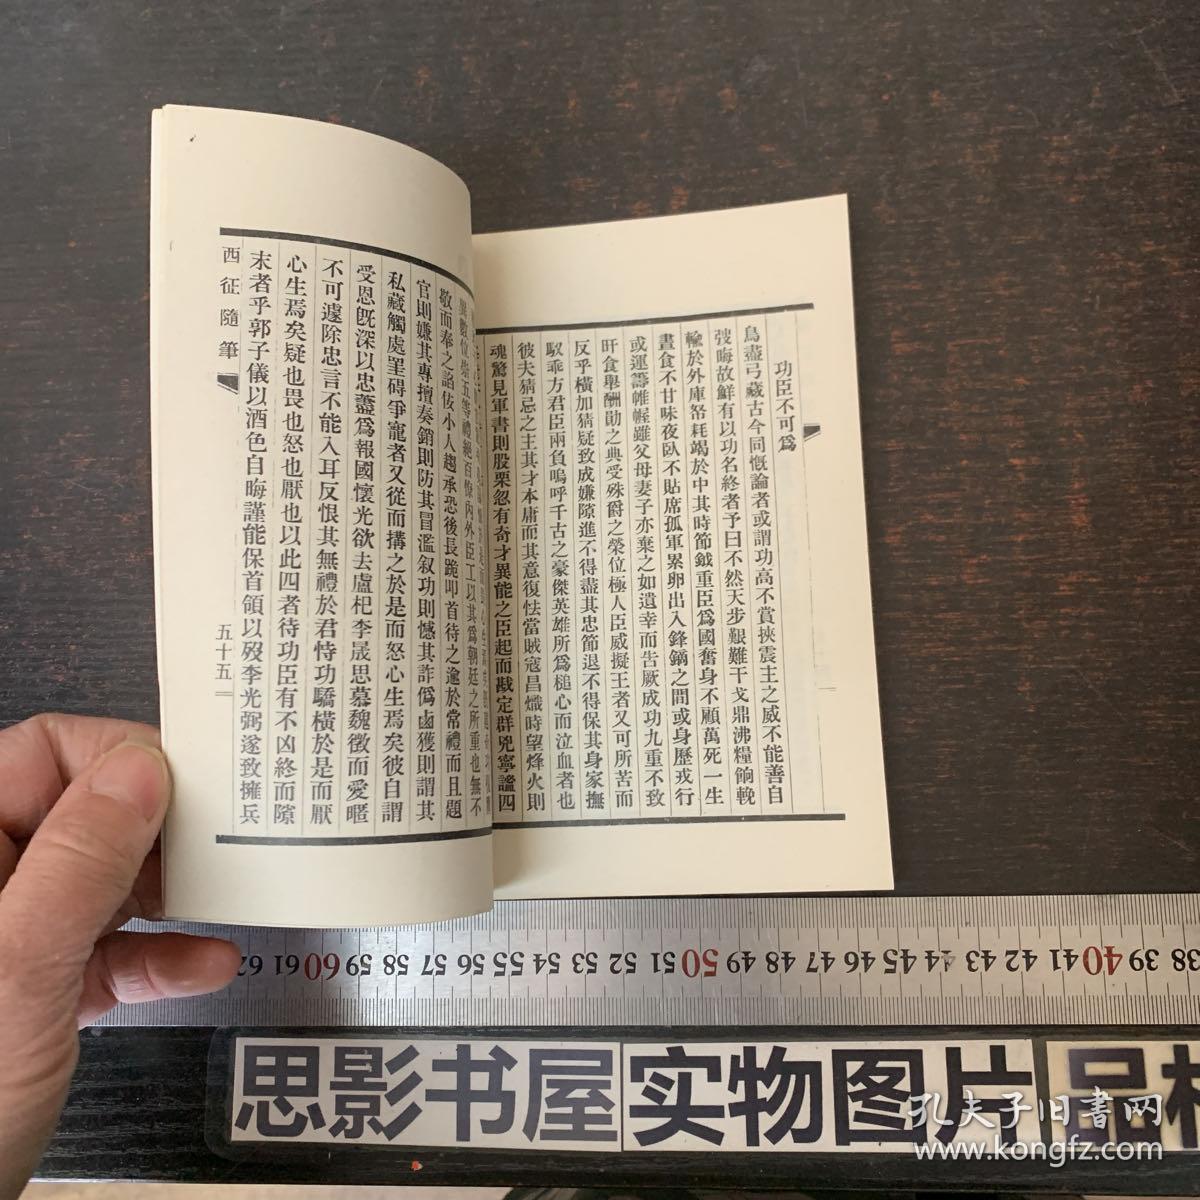 功臣不可爲
鳥盡弓藏古今同慨論者或謂功高不賞挾震主之威不能善自
弢晦故鮮有以功名終者予曰不然天步艱難干戈鼎沸糧餉輓
輸於外庫帑耗竭於中其時節鉞重臣爲國奮身不顧萬死一生
晝食不甘味夜臥不貼席孤軍累卵出入鋒鏑之間或身歷戎行
或運籌帷幄雖父母妻子亦棄之如遺幸而告厥成功九重不致
旰食舉酬勛之典受殊爵之榮位極人臣威擬王者又可所苦而
反乎橫加猜疑致成嫌隙進不得盡其忠節退不得保其身家撫
馭乖方君臣兩負嗚呼千古之豪傑英雄所爲槌心而泣血者也
彼夫猜忌之主其才本庸而其意復怯當賊寇昌熾時望烽火則
魂驚見軍書則股栗忽有奇才異能之臣起而戡定群兇寧謐四
異數位崇五等禮絕百僚內外臣工以其爲朝廷之所重也無不
敬而奉之諂佞小人趨承恐後長跪叩首待之逾於常禮而且題
官則嫌其專擅奏銷則防其冒濫叙功則憾其詐僞鹵獲則謂其
私藏觸處罣碍爭寵者又從而搆之於是而怒心生焉矣彼自謂
受恩旣深以忠藎爲報國懷光欲去盧杞李晟思慕魏徵而愛暱
不可遽除忠言不能入耳反恨其無禮於君恃功驕橫於是而厭
心生焉矣疑也畏也怒也厭也以此四者待功臣有不凶終而隙
末者乎郭子儀以酒色自晦謹能保首領以歿李光弼遂致擁兵
西征隨筆
五十五
38 39 40 41 42 43 44 45 46 47 48 49 50 51 52 53 54 55 56 57 58 59 60 61 62
思影书屋 实物图片 品
孔夫子旧書网
www.kongfz.com